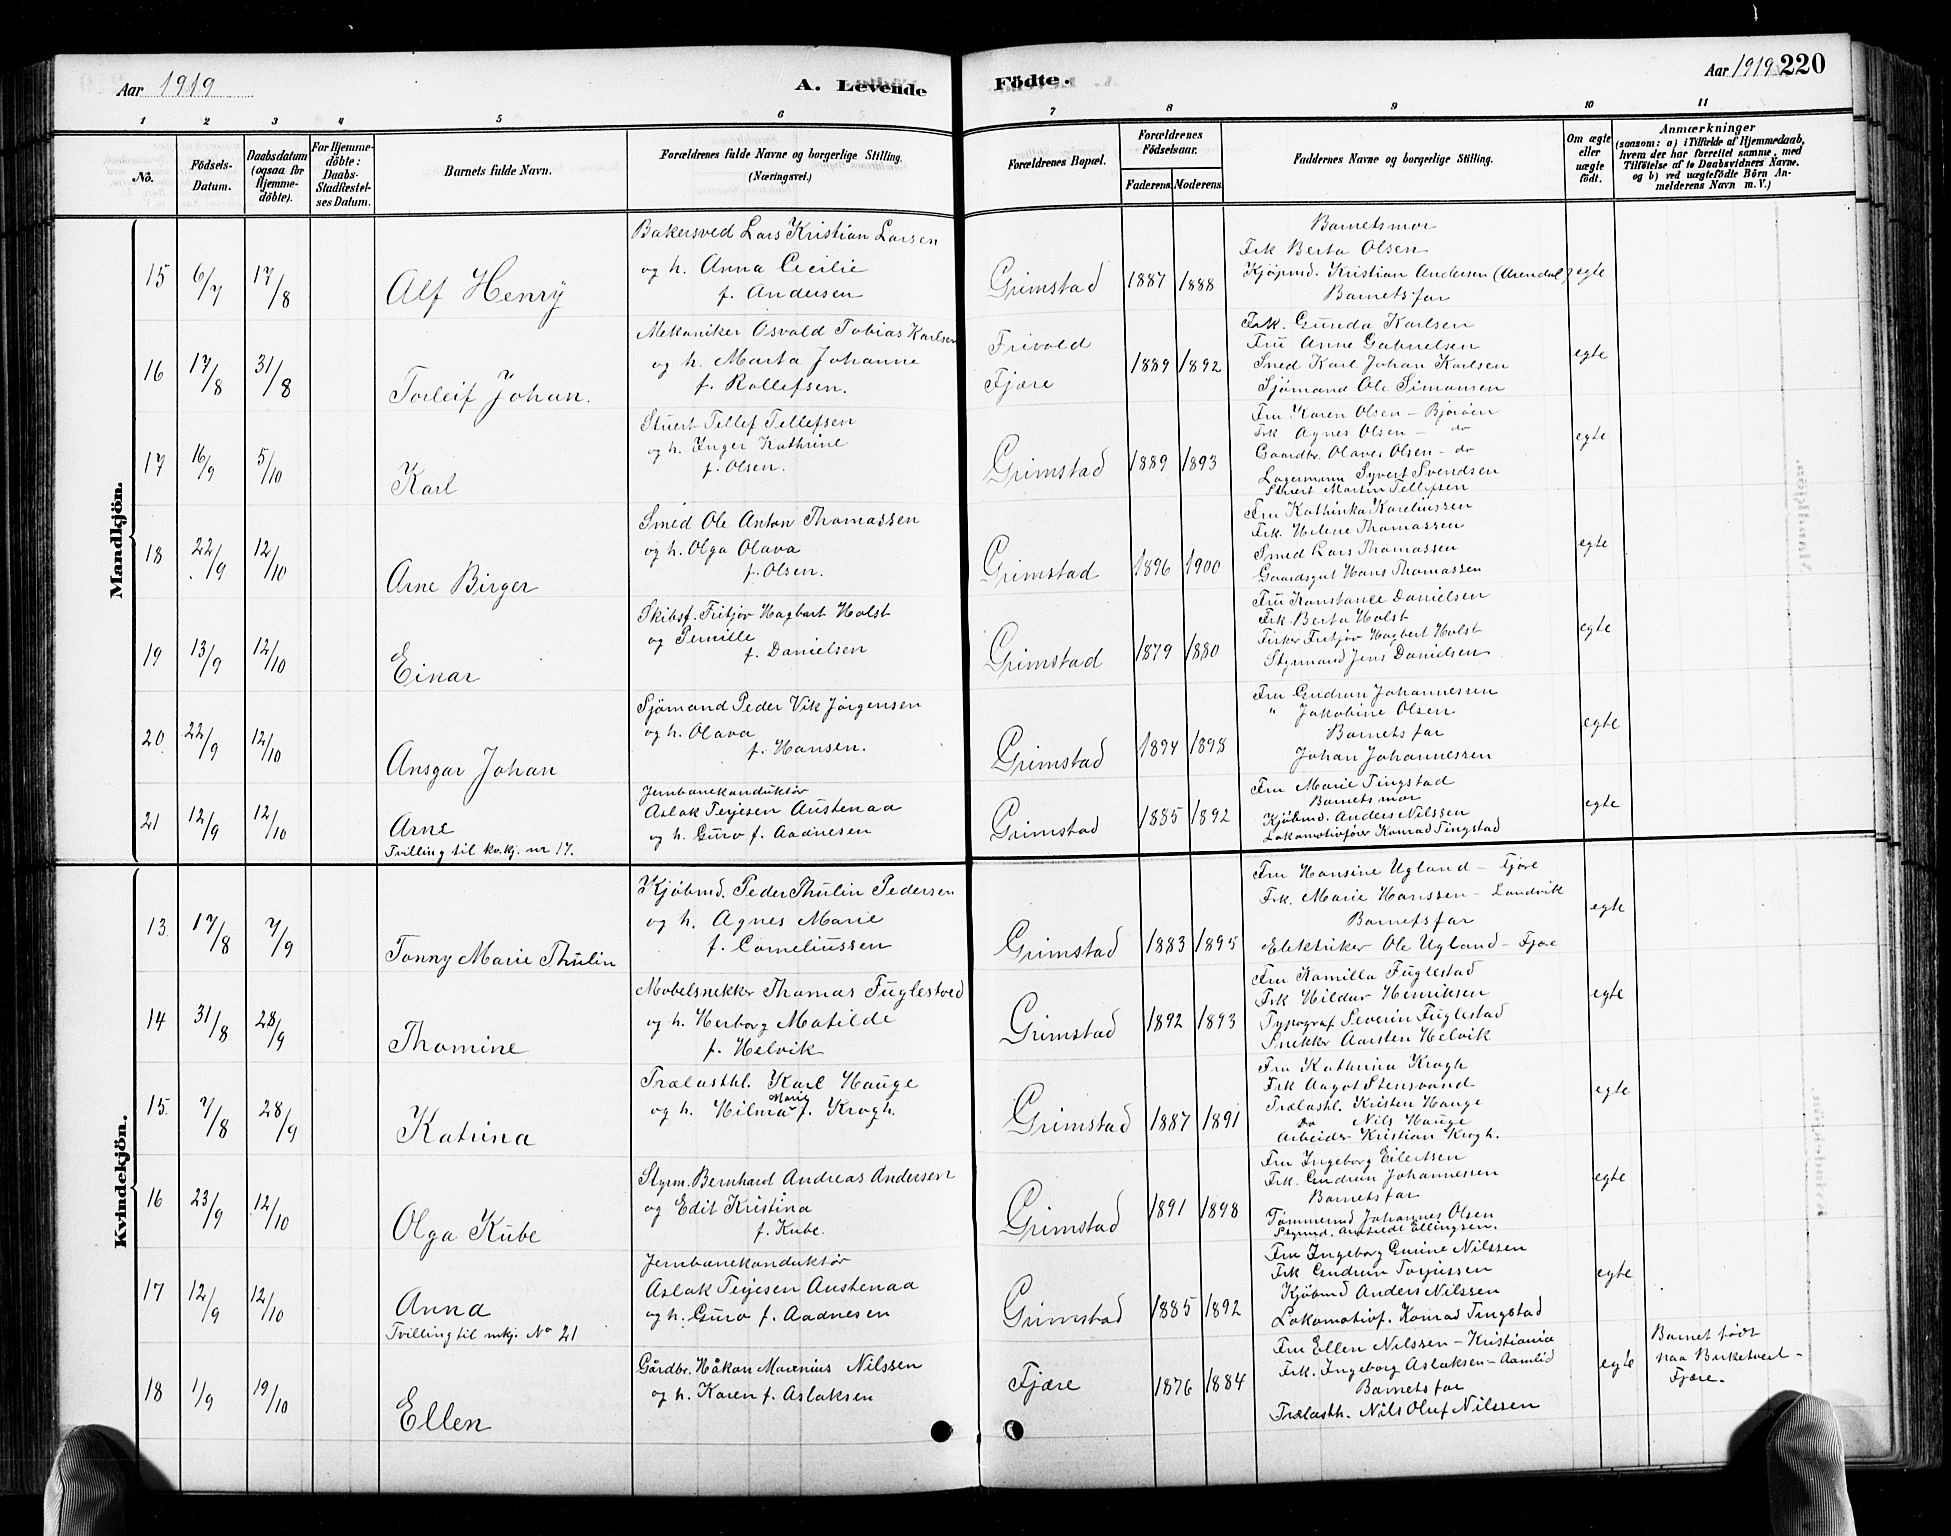 Aar 1919
A. Levende
Födte.
Aar 1919 220
1 2 3 4 5 6 7 8 9 10 11
No.
Födsels-Datum.
Daabsdatum (ogsaa for Hjemme-döbte).
For Hjemme-döbte: Daabs-Stadfæstel-ses Datum.
Barnets fulde Navn.
Forældrenes fulde Navne og borgerlige Stilling.
(Næringsvei.)
Forældrenes Bopæl.
Forældrenes Födselsaar.
Faderens. Moderens.
Faddernes Navne og borgerlige Stilling.
Om ægte eller uægte födt.
Anmærkninger
(saasom: a) i Tilfælde af Hjemmedaab, hvem der har forrettet samme, med Tilföielse af to Daabsvidners Navne, og b) ved uægtefödte Börn An-melderens Navn m. V.)
Mandkjön.
15 6/7 17/8 Alf Henry
Bakersved Lars Kristian Larsen
og h. Anna Cecilie
f. Andersen
Grimstad 1887 1888
Barnetsmor
Frk Berta Olsen
Kjöpmd. Kristian Andersen (Arendal)
Barnetsfar
egte
16 17/8 31/8 Torleif Johan.
Mekaniker Osvald Tobias Karlsen
og h. Marta Johanne
f. Rollefsen.
Frivold
Fjære
1889 1892
Frk. Gunda Karlsen
Fru Anne Gabrielsen
Smed Karl Johan Karlsen
Sjømand Ole Simonsen
egte
17 16/9 5/10 Karl
Stuert Tellef Tellefsen
og h. Inger Kathrine
f. Olsen.
Grimstad 1889 1893
Fru Karen Olsen - Bjorøen
Frk Agnes Olsen - do
Gaardbr. Olaves Olsen - do
Lagermann Syvert Svendsen
Stuert Martin Tellefsen
egte
18 22/9 12/10 Arne Birger
Smed Ole Anton Thomassen
og h. Olga Olava
f. Olsen.
Grimstad 1896 1900
Fru Kathinka Kareliussen
Frk. Helene Thomassen
Smed Lars Thomassen
Gaardsgut Hans Thomassen
egte
19 13/9 12/10 Einar
Skibsf. Fritjov Hagbart Holst
og Pernille
f. Danielsen
Grimstad 1879 1880
Fru Konstance Danielsen
Frk. Berta Holst
Fisker Fritjov Hagbert Holst
Styrmand Jens Danielsen
egte
20. 22/9 12/10 Ansgar Johan
Sjømand Peder Vik Jørgensen
og h. Olava
f. Hansen.
Grimstad 1894 1898
Fru Gudrun Johannessen
" Jakobine Olsen
Barnetsfar
Johan Johannessen
egte
21 12/9 12/10 Arne
Tvilling til kv.kj. nr 17.
Jernbanekonduktør
Aslak Terjesen Austenaa
og h. Guro f. Aadnesen
Grimstad 1885 1892
Fru Marie Tingstad
Barnetsmor
Kjøbmd. Anders Nilssen
Lokomotivfører Konrad Tingstad
egte
Kvindekjön.
13. 17/8 7/9 Tonny Marie Thulin
Kjøbmd. Peder Thulin Pedersen
og h. Agnes Marie
f. Corneliussen
Grimstad 1883 1895
Fru Hansine Ugland - Fjære
Frk. Marie Hanssen - Landvik
Barnetsfar
Elektriker Ole Ugland - Fjære
egte
14 31/8 28/9 Thomine
Møbelsnekker Thomas Fuglestved
og h. Herborg Matilde
f. Helvik
Grimstad 1892 1893
Fru Kamilla Fuglestad
Frk Hildur Henriksen
Typograf Severin Fuglestad
Snekker Aarsten Helvik
egte
15. 7/8 28/9 Katrina
Trælasthl. Karl Hauge
og h. Hilma Marie f. Krogh.
Grimstad 1887 1891
Fru Kathrina Krogh
Frk Aagot Stensvand
Trælasthl. Kristen Hauge
Do Nils Hauge
Arbeider Kristian Krogh.
egte
16 23/9 12/10 Olga Kube
Styrm. Bernhard Andreas Andersen
og Edit Kristina
f. Kube.
Grimstad 1891 1898
Fru Ingeborg Eilertsen
Frk. Gudrun Johannessen
Barnetsfar
Tømmermd Johannes Olsen
Styrmd. Ellingsen.
egte
17 12/9 12/10 Anna
Tvilling til mkj. No 21
Jernbanekonduktør
Aslak Terjesen Austenaa
og h. Guro f. Aadnesen
Grimstad 1885 1892
Fru Ingeborg Gurine Nilssen
Frk Gudrun Torjussen
Kjøbmd Anders Nilssen
Lokomotivf. Konrad Tingstad
egte
18 1/9 19/10 Ellen
Gårdbr. Håkon Marenius Nilssen
og h. Karen f. Aslaksen
Fjære 1876 1884
Fru Ellen Nilssen - Kristiania
Frk. Ingeborg Aslaksen - Aamlid
Barnetsfar
Trælasth. Nils Oluf Nilssen
egte
Barnet født
paa Birketveit -
Fjære.